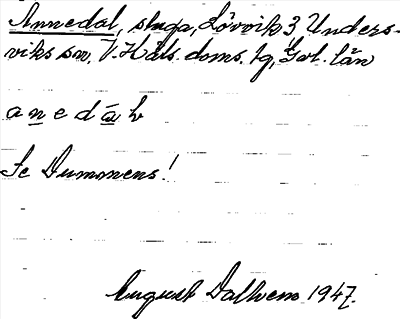 Annedal, stuga, Lövvik 3, Unders-
viks sn, V. Häls. doms. tg, Gvl. län
a n e d ā l
Se Dummens!
August Dalhem 1947.